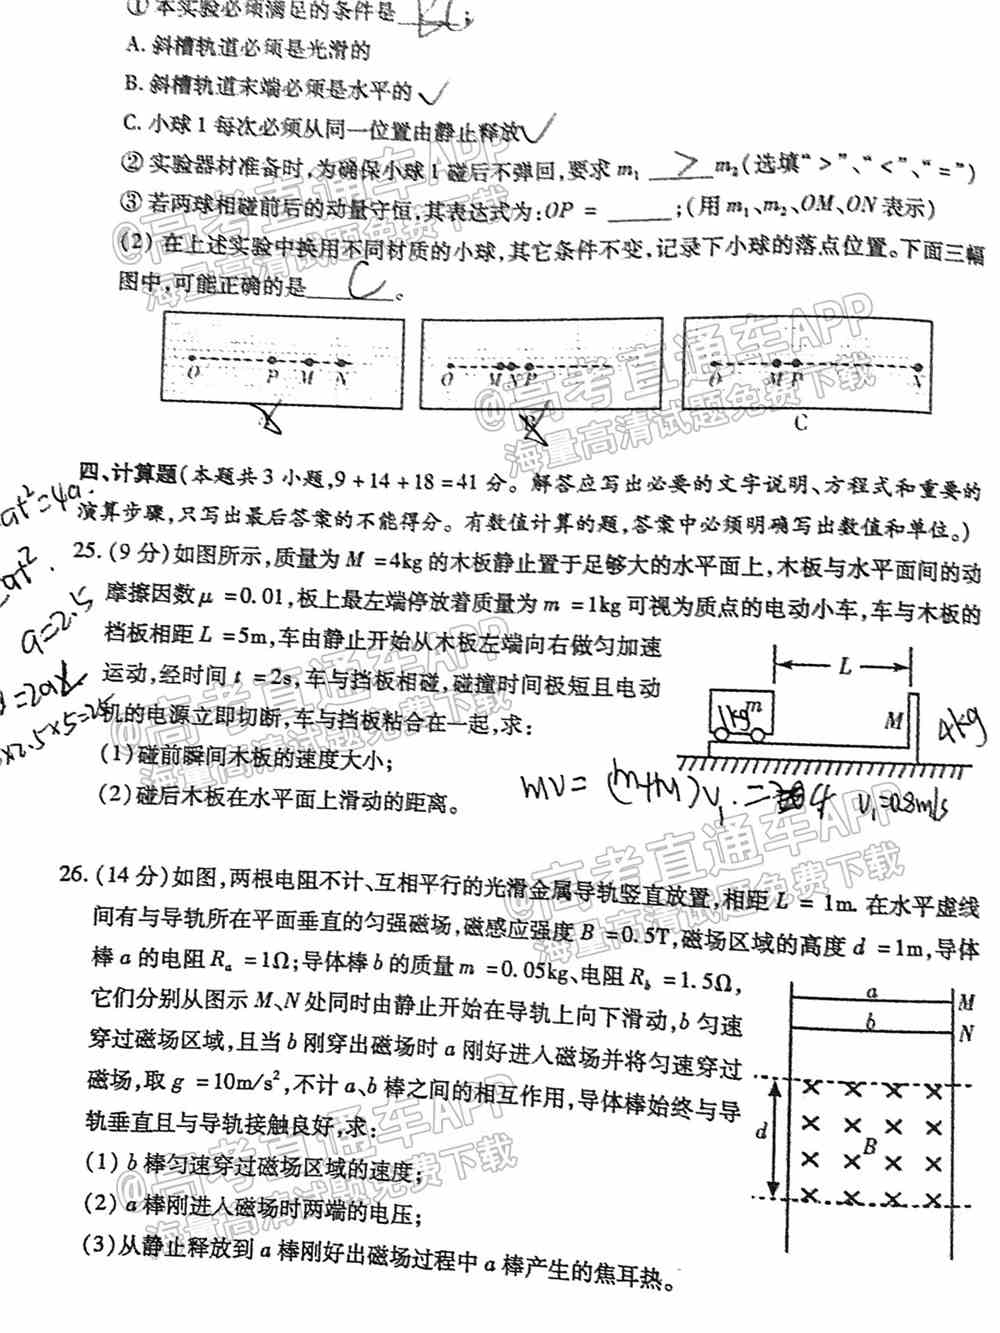 ① 本实验必须满足的条件是______;
A. 斜槽轨道必须是光滑的
B. 斜槽轨道末端必须是水平的 ✓
C. 小球 1 每次必须从同一位置由静止释放 ✓
② 实验器材准备时,为确保小球 1 碰后不弹回,要求 m₁ > m₂(选填“>”、“<”、“=”)
③ 若两球相碰前后的动量守恒,其表达式为:OP = ______;(用 m₁、m₂、OM、ON 表示)
(2) 在上述实验中换用不同材质的小球,其它条件不变,记录下小球的落点位置。下面三幅
图中,可能正确的是 C 。
O P M N
O M N P
O M P N
C
四、计算题(本题共 3 小题,9+14+18=41 分。解答应写出必要的文字说明、方程式和重要的
演算步骤,只写出最后答案的不能得分。有数值计算的题,答案中必须明确写出数值和单位。)
at²=4a.
at².
a=2.5
=2ax
×2.5×5=25
25. (9 分)如图所示,质量为 M =4kg 的木板静止置于足够大的水平面上,木板与水平面间的动
摩擦因数 μ =0.01,板上最左端停放着质量为 m =1kg 可视为质点的电动小车,车与木板的
挡板相距 L =5m,车由静止开始从木板左端向右做匀加速
运动,经时间 t =2s,车与挡板相碰,碰撞时间极短且电动
机的电源立即切断,车与挡板粘合在一起,求:
(1)碰前瞬间木板的速度大小;
(2)碰后木板在水平面上滑动的距离。
L
m
1kg
M
4kg
mv = (m+M)v₁.
v₁=0.8m/s
26. (14 分)如图,两根电阻不计、互相平行的光滑金属导轨竖直放置,相距 L = 1m. 在水平虚线
间有与导轨所在平面垂直的匀强磁场,磁感应强度 B =0.5T,磁场区域的高度 d =1m,导体
棒 a 的电阻 Rₐ =1Ω;导体棒 b 的质量 m =0.05kg、电阻 R_b =1.5Ω,
它们分别从图示 M、N 处同时由静止开始在导轨上向下滑动,b 匀速
穿过磁场区域,且当 b 刚穿出磁场时 a 刚好进入磁场并将匀速穿过
磁场,取 g =10m/s²,不计 a、b 棒之间的相互作用,导体棒始终与导
轨竖直且与导轨接触良好,求:
(1) b 棒匀速穿过磁场区域的速度;
(2) a 棒刚进入磁场时两端的电压;
(3)从静止释放到 a 棒刚好出磁场过程中 a 棒产生的焦耳热。
a
M
b
N
d
B
@高考直通车APP
海量高清试题免费下载
@高考直通车APP
海量高清试题免费下载
@高考直通车APP
海量高清试题免费下载
@高考直通车APP
海量高清试题免费下载
@高考直通车APP
海量高清试题免费下载